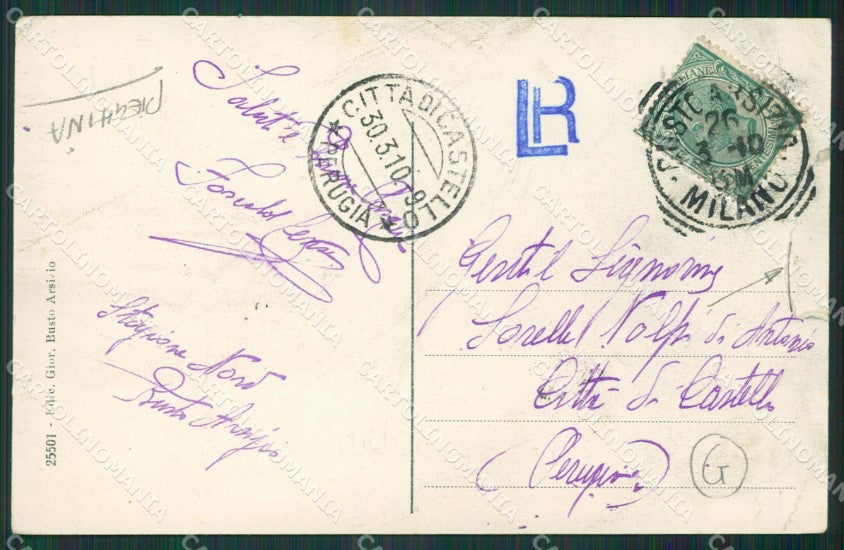 PIEGHINA
Saluti e
CITTÀ DI CASTELLO
30.3.10
★ PERUGIA ★
LR
BUSTO ARSIZIO
26
3 10
MILANO
Gentil Signorine
Sorelle Volpi di Antonio
Città di Castello
(Perugia)
G
Stazione Nord
Busto Arsizio
25501 - Ediz. Gior. Busto Arsizio
CARTOLINOMANIA